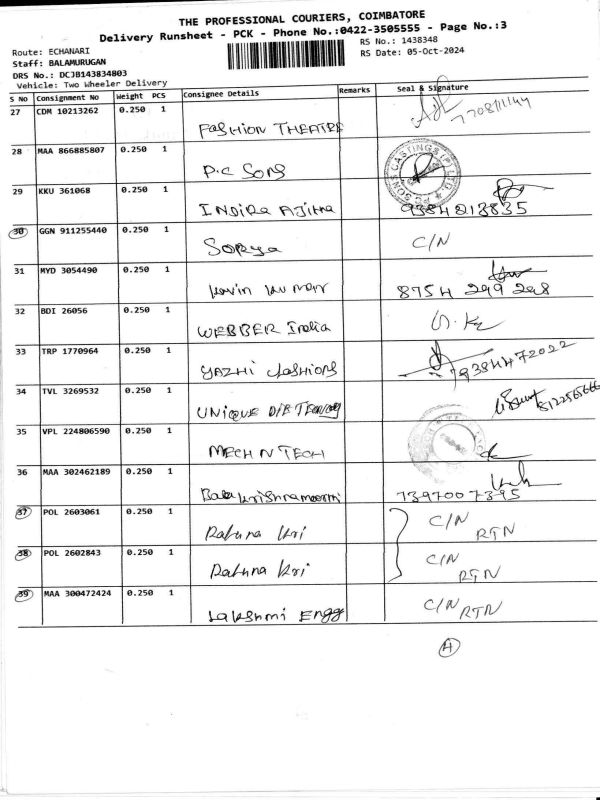 THE PROFESSIONAL COURIERS, COIMBATORE
Delivery Runsheet - PCK - Phone No.:0422-3505555 - Page No.:3
Route: ECHANARI
RS No.: 1438348
Staff: BALAMURUGAN
RS Date: 05-Oct-2024
DRS No.: DCJB143834803
Vehicle: Two Wheeler Delivery
S No Consignment No Weight PCS Consignee Details Remarks Seal & Signature
27 CDM 10213262 0.250 1 FASHION THEATRE
28 MAA 866885807 0.250 1 P.C SONS
29 KKU 361068 0.250 1 INDIRA AJITHA 9384813835
30 GGN 911255440 0.250 1 Sorya C/N
31 MYD 3054490 0.250 1 Kavin Kumar 8754 299 298
32 BDI 26056 0.250 1 WEBBER India
33 TRP 1770964 0.250 1 YAZHI fashions 9384472022
34 TVL 3269532 0.250 1 UNIQUE DIE
35 VPL 224806590 0.250 1 MECH N TECH
36 MAA 302462189 0.250 1 Bala Krishnamoorthi 7397007395
37 POL 2603061 0.250 1 Ratuna Kri C/N RTN
38 POL 2602843 0.250 1 Ratuna Kri C/N RTN
39 MAA 300472424 0.250 1 Lakshmi Engg C/N RTN